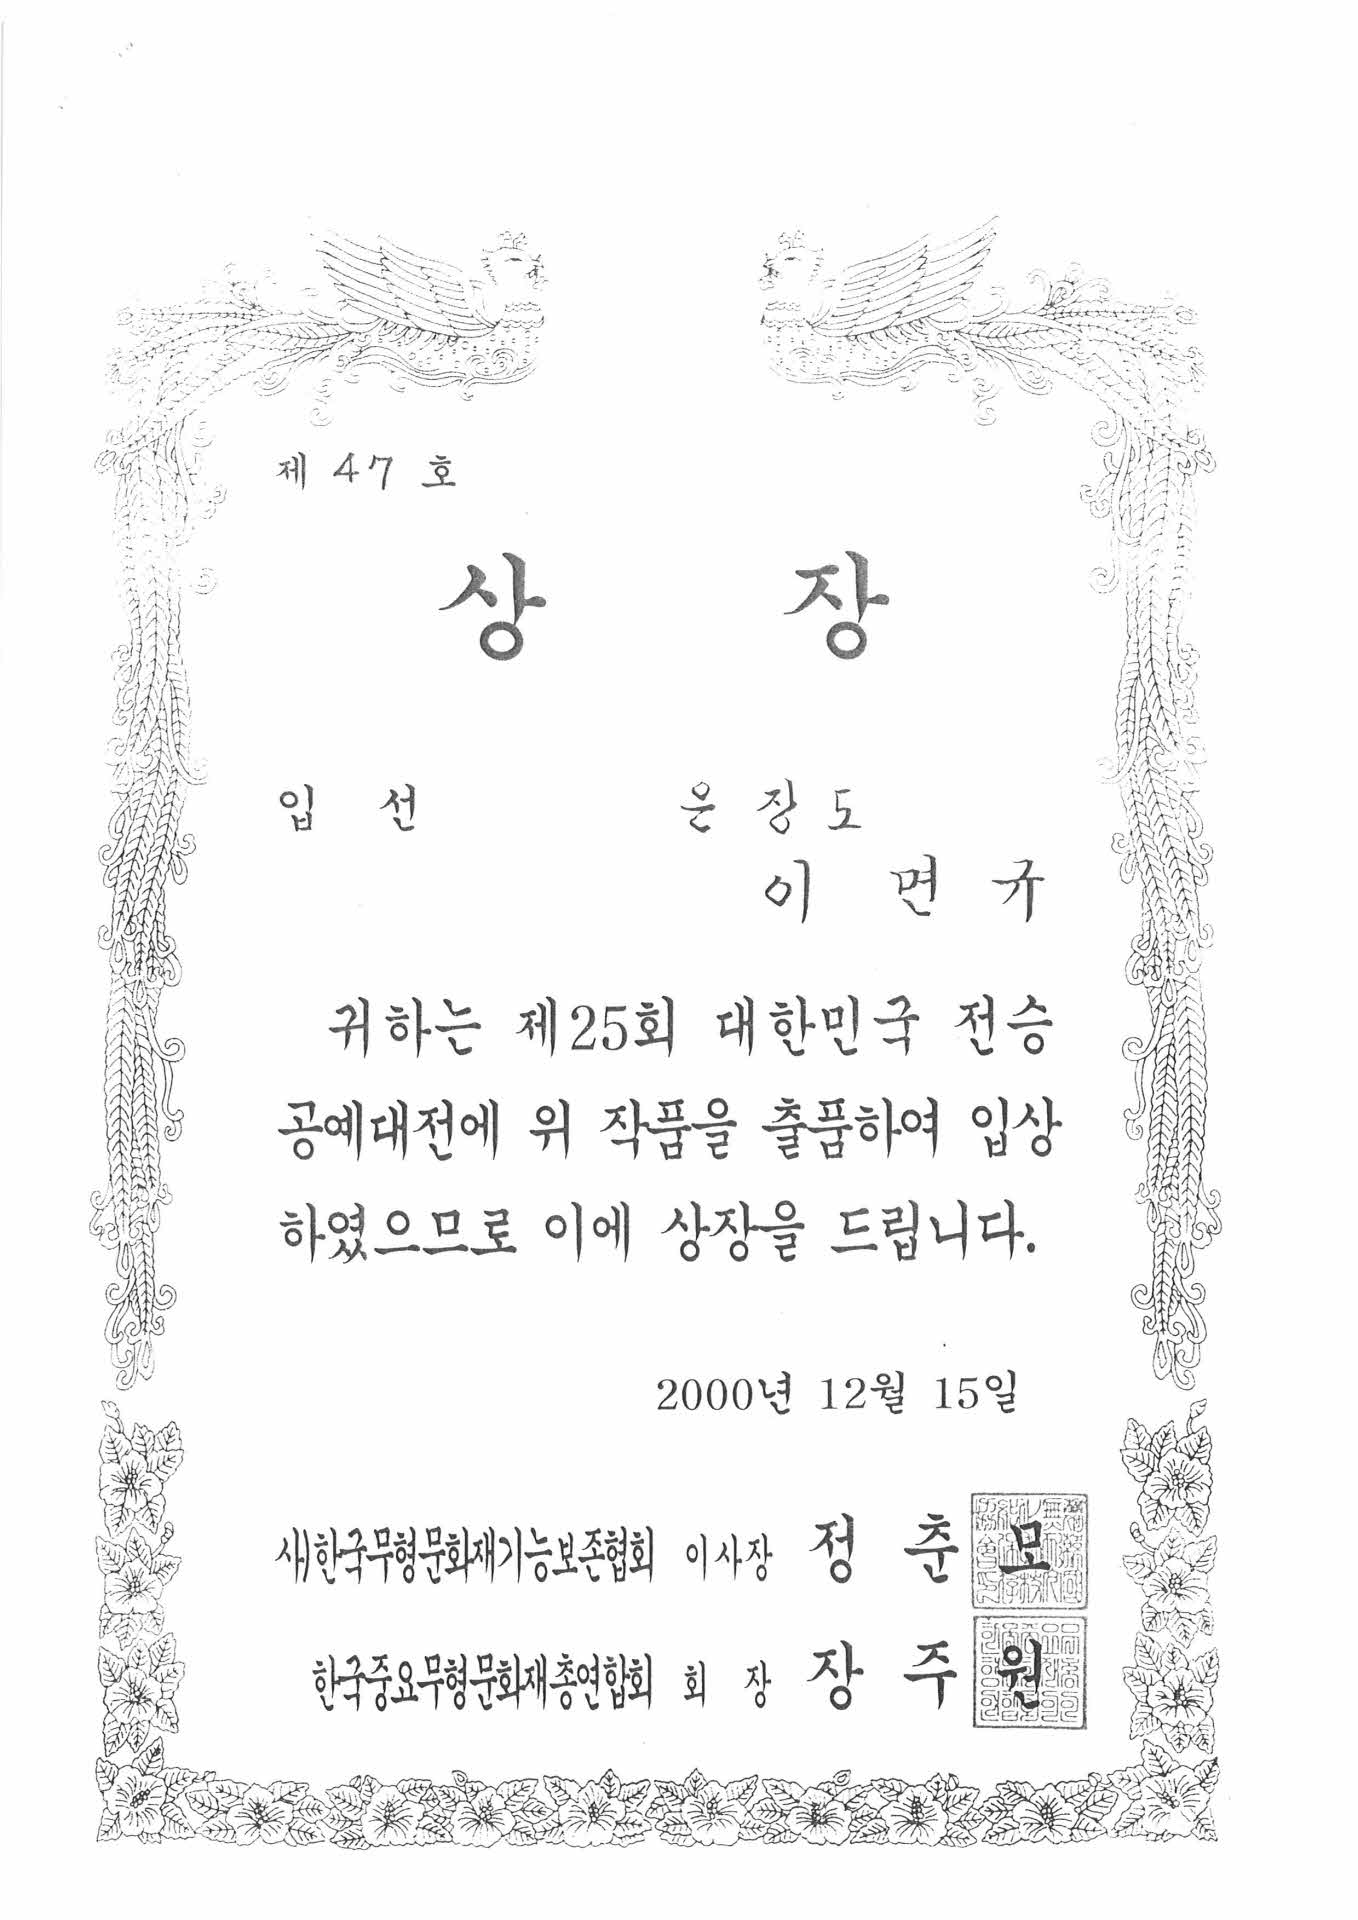 제 47 호
상 장
입 선 은 장 도
이 면 규
귀하는 제25회 대한민국 전승
공예대전에 위 작품을 출품하여 입상
하였으므로 이에 상장을 드립니다.
2000년 12월 15일
사)한국무형문화재기능보존협회 이사장 정 춘 모
한국중요무형문화재총연합회 회 장 장 주 원